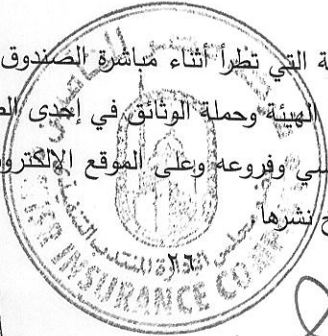 ة التي تطرأ أثناء مباشرة الصندوق
الهيئة وحملة الوثائق في إحدى
سي وفروعه وعلى الموقع الالكترو
نشرها
INSURANCE CO